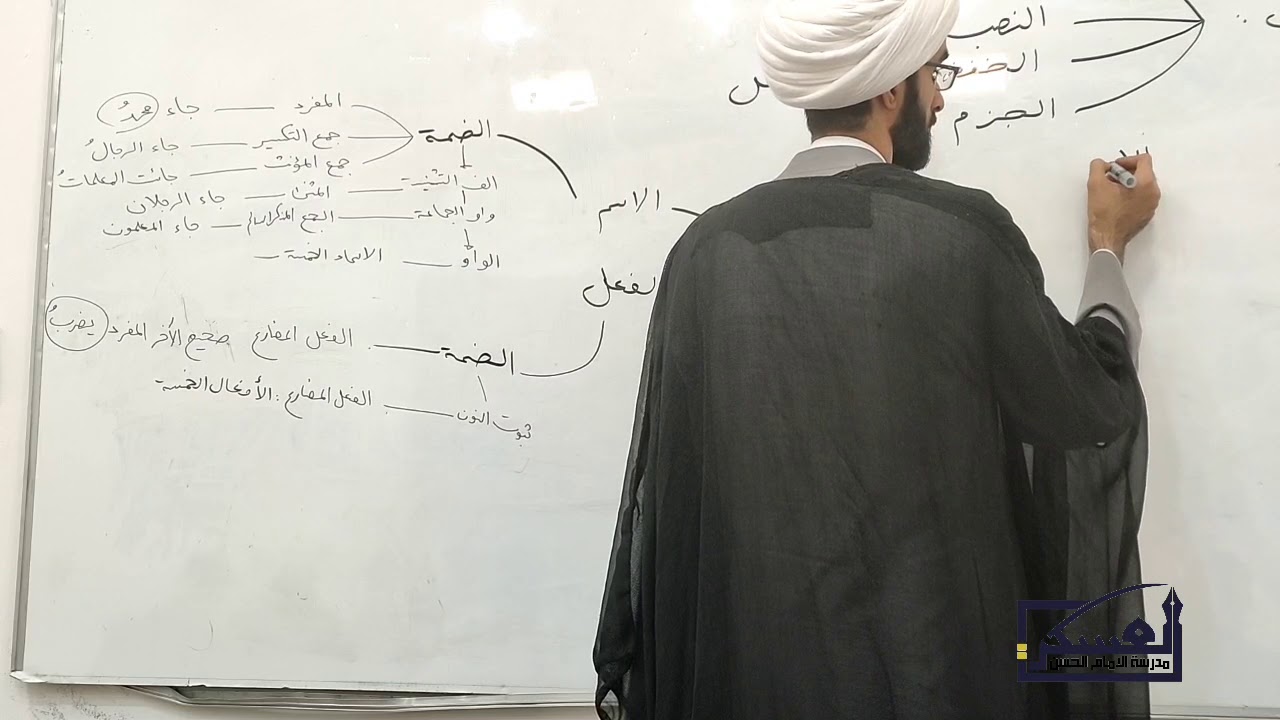 النصب
الخفض
الجزم
الاسم
الفعل
الضمة
المفرد — جاء محمدٌ
جمع التكسير — جاء الرجالُ
جمع المؤنث — جائت المعلماتُ
الف التثنية — المثنى — جاء الرجلان
واو الجماعة — الجمع المذكر السالم — جاء المعلمون
الواو — الاسماء الخمسة —
الضمة — الفعل المضارع صحيح الآخر المفرد يضربُ
ثبوت النون — الفعل المضارع : الأفعال الخمسة
العسكر
مدرسة الامام الحسين